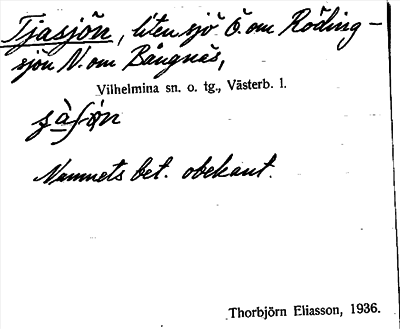 Tjåsjön, liten sjö Ö. om Röding-
sjön N. om Bångnäs,
Vilhelmina sn. o. tg., Västerb. l.
Namnets bet. obekant.
Thorbjörn Eliasson, 1936.